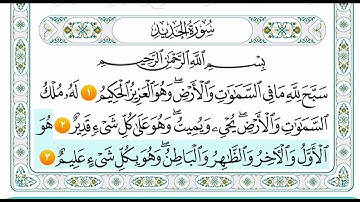 سُورَةُ الحَدِيدِ
بِسْمِ اللَّهِ الرَّحْمَٰنِ الرَّحِيمِ
سَبَّحَ لِلَّهِ مَا فِي السَّمَٰوَٰتِ وَالْأَرْضِ ۖ وَهُوَ الْعَزِيزُ الْحَكِيمُ ١ لَهُ مُلْكُ
السَّمَٰوَٰتِ وَالْأَرْضِ ۖ يُحْيِۦ وَيُمِيتُ ۖ وَهُوَ عَلَىٰ كُلِّ شَيْءٍ قَدِيرٌ ٢ هُوَ
الْأَوَّلُ وَالْآخِرُ وَالظَّٰهِرُ وَالْبَاطِنُ ۖ وَهُوَ بِكُلِّ شَيْءٍ عَلِيمٌ ٣